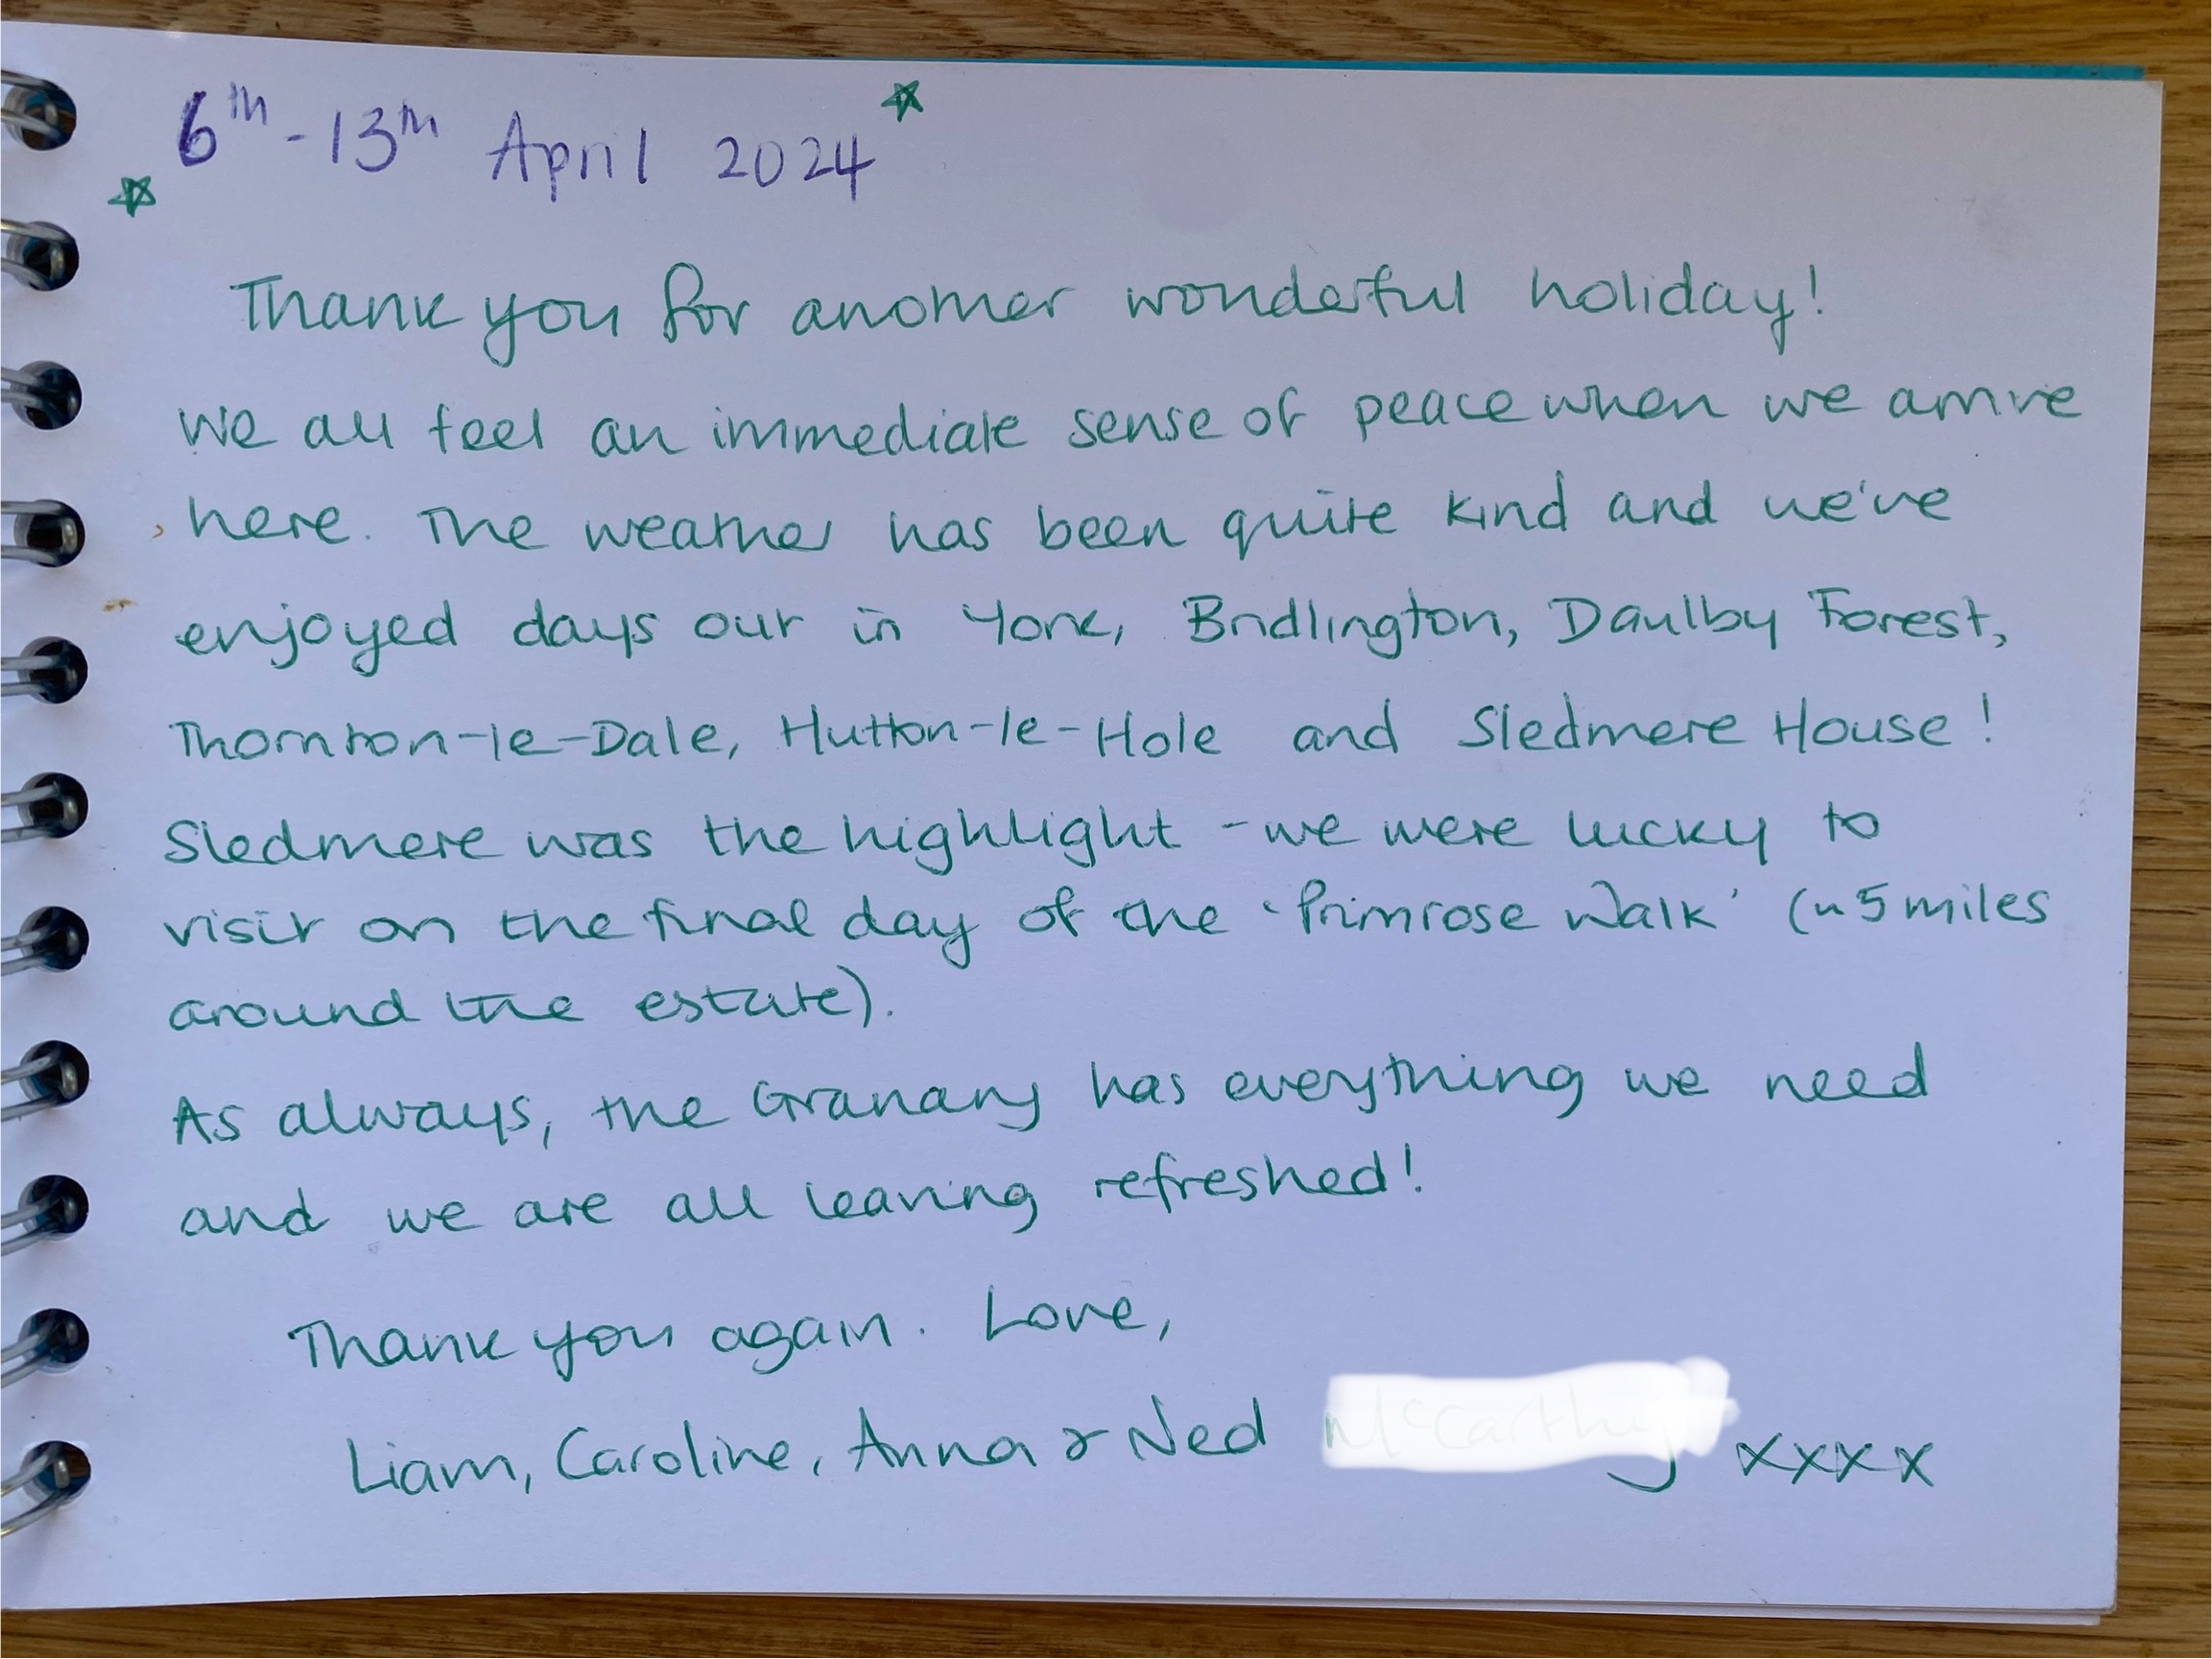 6th - 13th April 2024
Thank you for another wonderful holiday!
We all feel an immediate sense of peace when we arrive
here. The weather has been quite kind and we've
enjoyed days out in York, Bridlington, Daulby Forest,
Thornton-le-Dale, Hutton-le-Hole and Sledmere House!
Sledmere was the highlight - we were lucky to
visit on the final day of the 'Primrose Walk' (~5 miles
around the estate).
As always, the Granary has everything we need
and we are all leaving refreshed!
Thank you again. Love,
Liam, Caroline, Anna & Ned xxxx